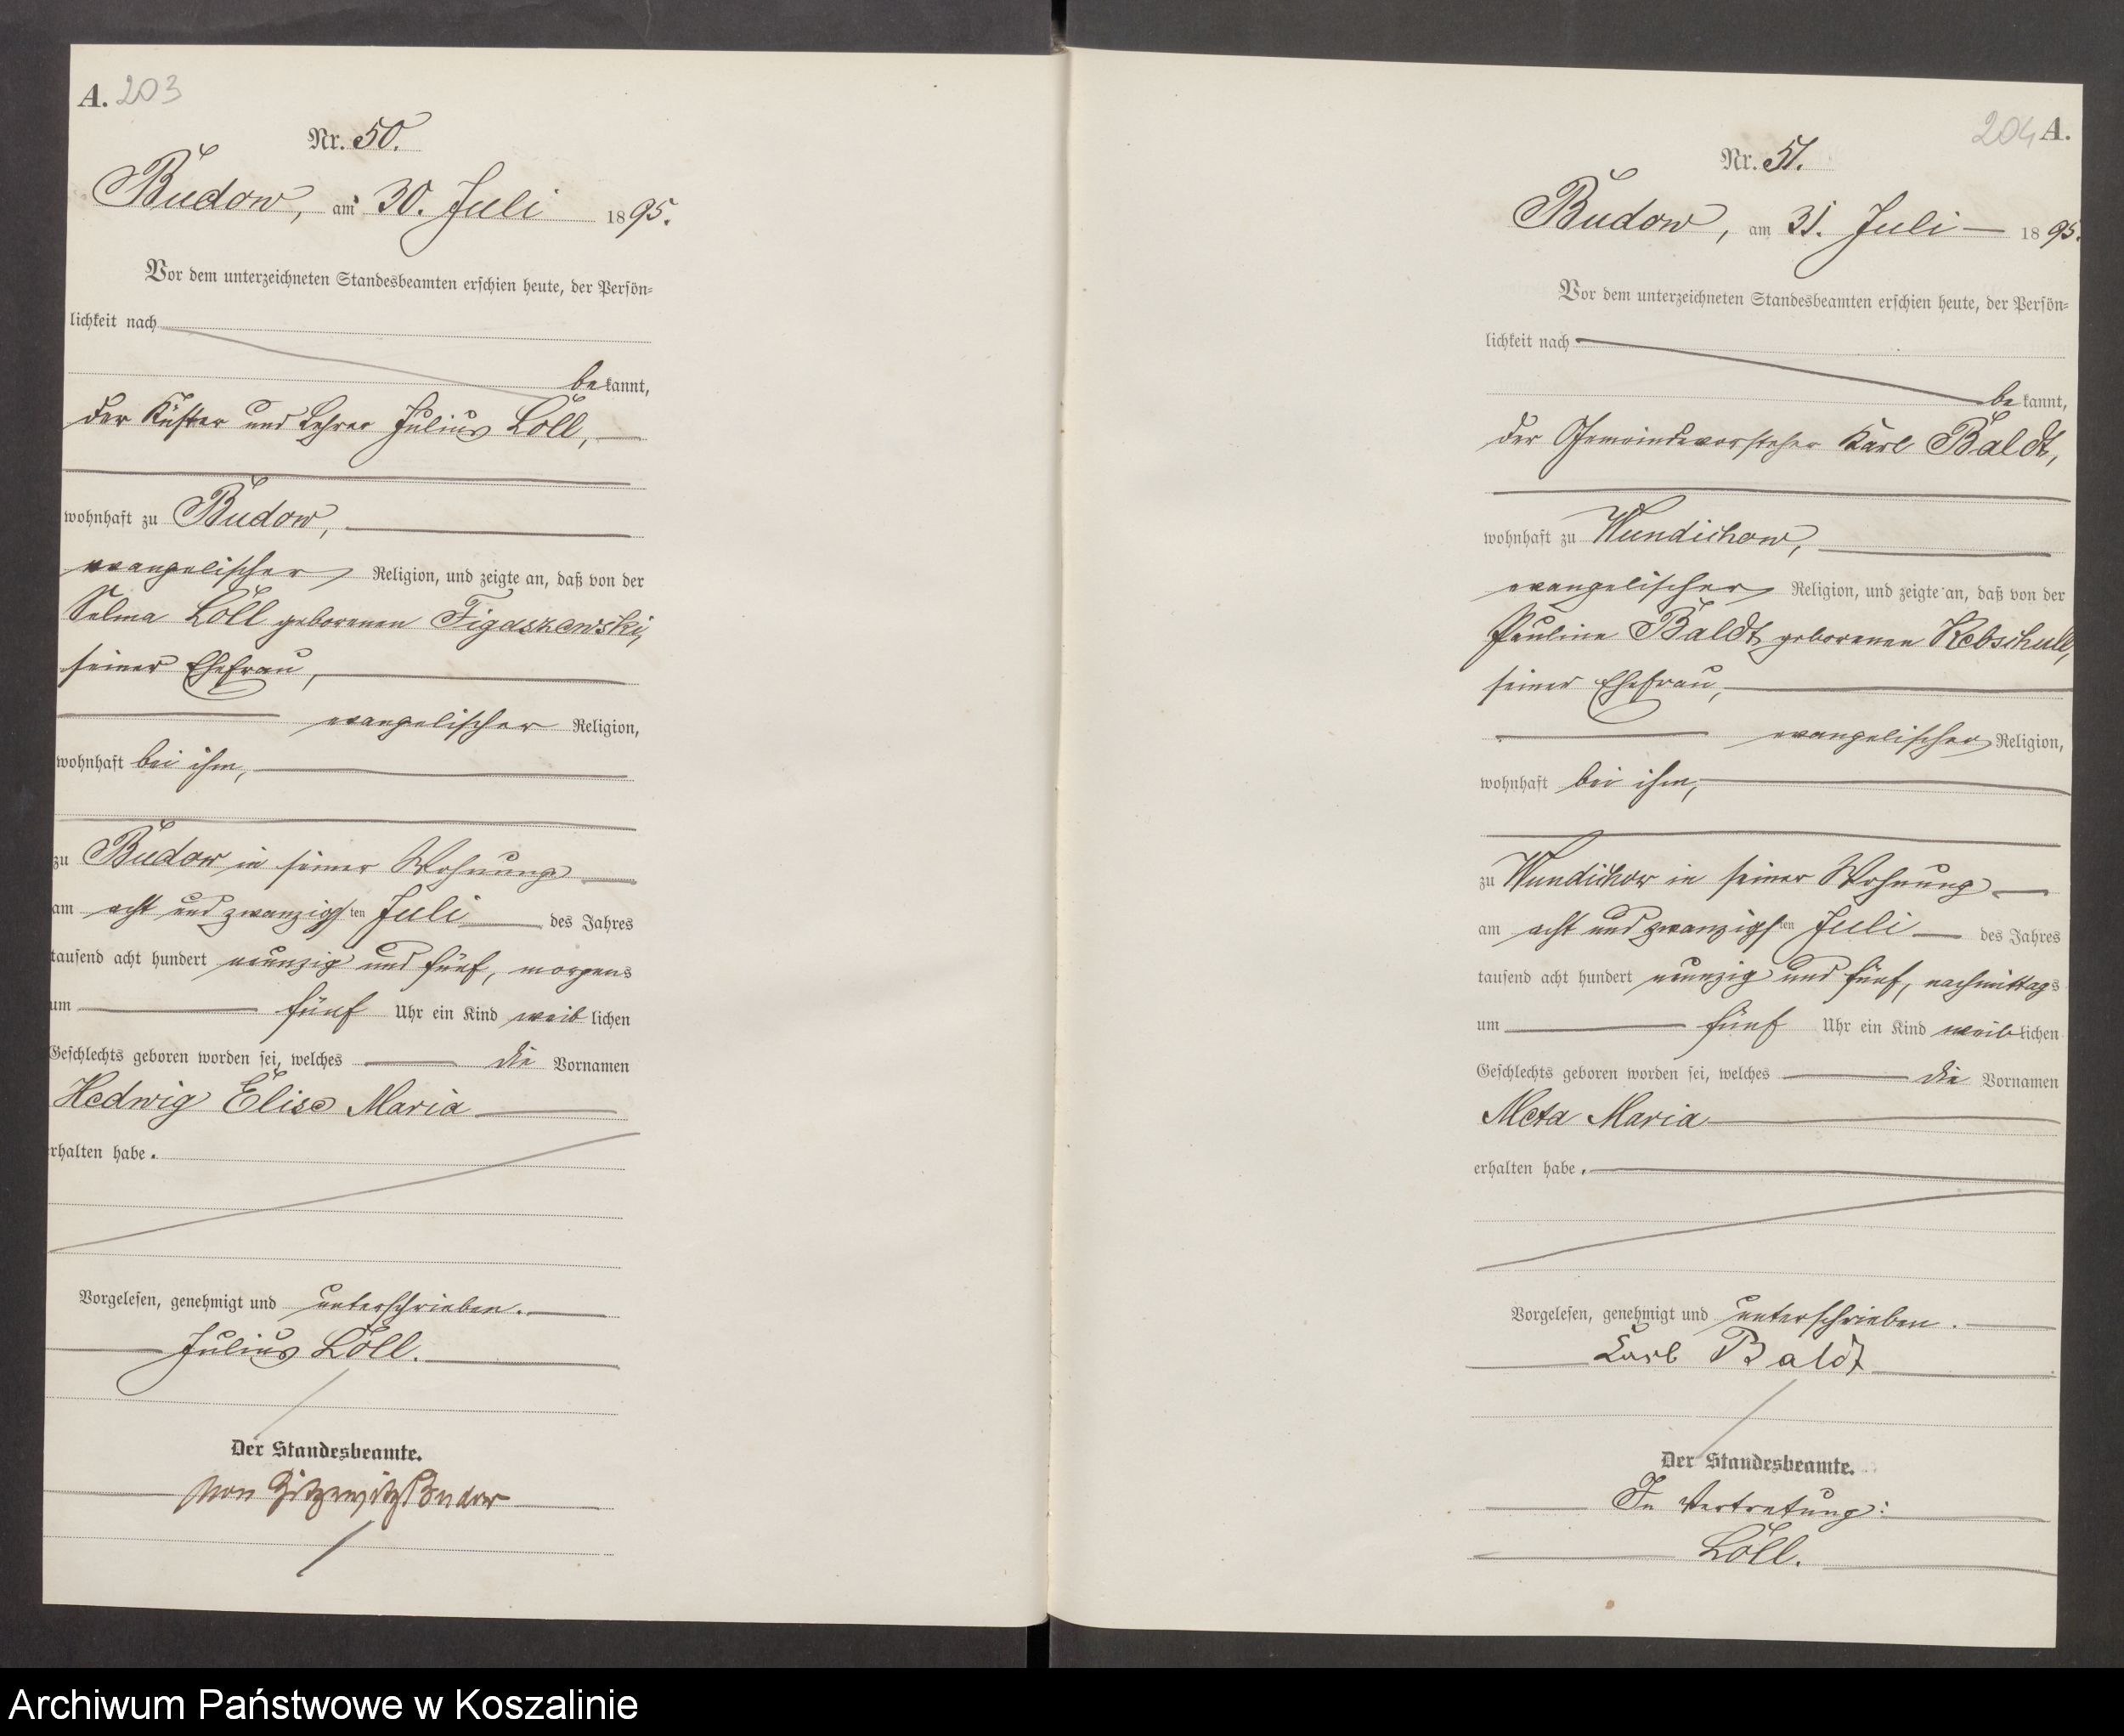 A. 203
Nr. 50.
Budow, am 30. Juli 1895.
Vor dem unterzeichneten Standesbeamten erschien heute, der Persön-
lichkeit nach
bekannt,
der Küster und Lehrer Julius Löll,
wohnhaft zu Budow,
evangelischer Religion, und zeigte an, daß von der
Selma Löll geborenen Figaszewski,
seiner Ehefrau,
evangelischer Religion,
wohnhaft bei ihm,
zu Budow in seiner Wohnung
am acht und zwanzigsten Juli des Jahres
tausend acht hundert neunzig und fünf, morgens
um fünf Uhr ein Kind weiblichen
Geschlechts geboren worden sei, welches die Vornamen
Hedwig Elise Maria
erhalten habe.
Vorgelesen, genehmigt und unterschrieben.
Julius Löll.
Der Standesbeamte.
von Zitzewitz Budow
204 A.
Nr. 51.
Budow, am 31. Juli 1895.
Vor dem unterzeichneten Standesbeamten erschien heute, der Persön-
lichkeit nach
bekannt,
der Gemeindevorsteher Karl Baldt,
wohnhaft zu Wundichow,
evangelischer Religion, und zeigte an, daß von der
Pauline Baldt geborenen Rebschull,
seiner Ehefrau,
evangelischer Religion,
wohnhaft bei ihm,
zu Wundichow in seiner Wohnung
am acht und zwanzigsten Juli des Jahres
tausend acht hundert neunzig und fünf, nachmittags
um fünf Uhr ein Kind weiblichen
Geschlechts geboren worden sei, welches die Vornamen
Meta Maria
erhalten habe.
Vorgelesen, genehmigt und unterschrieben.
Karl Baldt
Der Standesbeamte.
In Vertretung:
Löll.
Archiwum Państwowe w Koszalinie